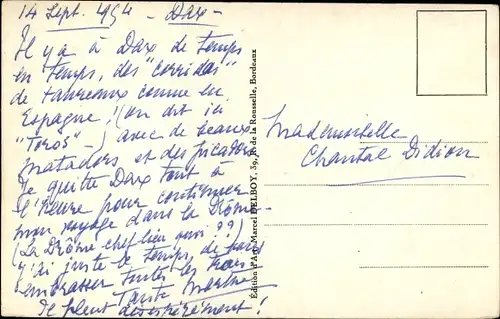 14 Sept. 1954 - Dax -
Il y a à Dax de temps
en temps, des "corridas"
de taureaux comme en
Espagne ! (on dit ici
"Toros" - ) avec de beaux
matadors et des picadors
Je quitte Dax tout à
l'heure pour continuer
mon voyage dans la Drôme
(La Drôme chef lieu quoi ??)
J'ai juste le temps de
embrasser toutes les trois
Tante Marthe
Il pleut désespérément !
Édition d'Art Marcel DELBOY, 39, de la Rousselle, Bordeaux
Mademoiselle
Chantal Didion